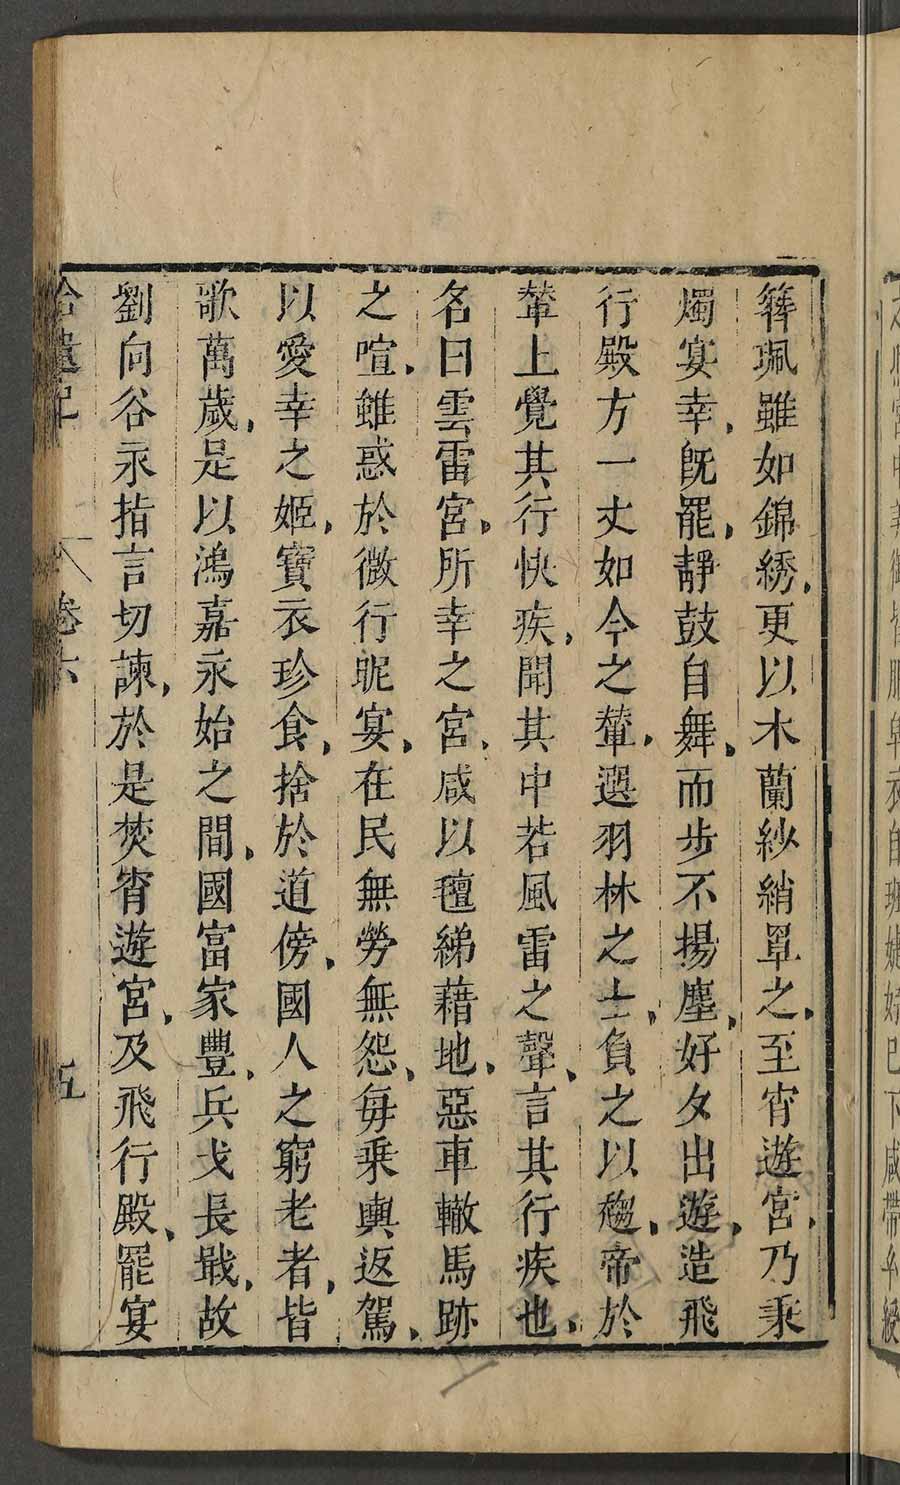 簪珮雖如錦綉更以木蘭紗綃罩之至宵遊宮乃秉
燭宴幸既罷靜鼓自舞而步不揚塵好夕出遊造飛
行殿方一丈如今之輦選羽林之士負之以趨帝於
輦上覺其行快疾聞其中若風雷之聲言其行疾也
名曰雲雷宮所幸之宮咸以氊綈藉地惡車轍馬跡
之喧雖惑於微行昵宴在民無勞無怨每乘輿返駕
以愛幸之姬寶衣珍食捨於道傍國人之窮老者皆
歌萬歲是以鴻嘉永始之間國富家豐兵戈長戢故
劉向谷永指言切諫於是焚宵遊宮及飛行殿罷宴
拾遺記 卷六 五